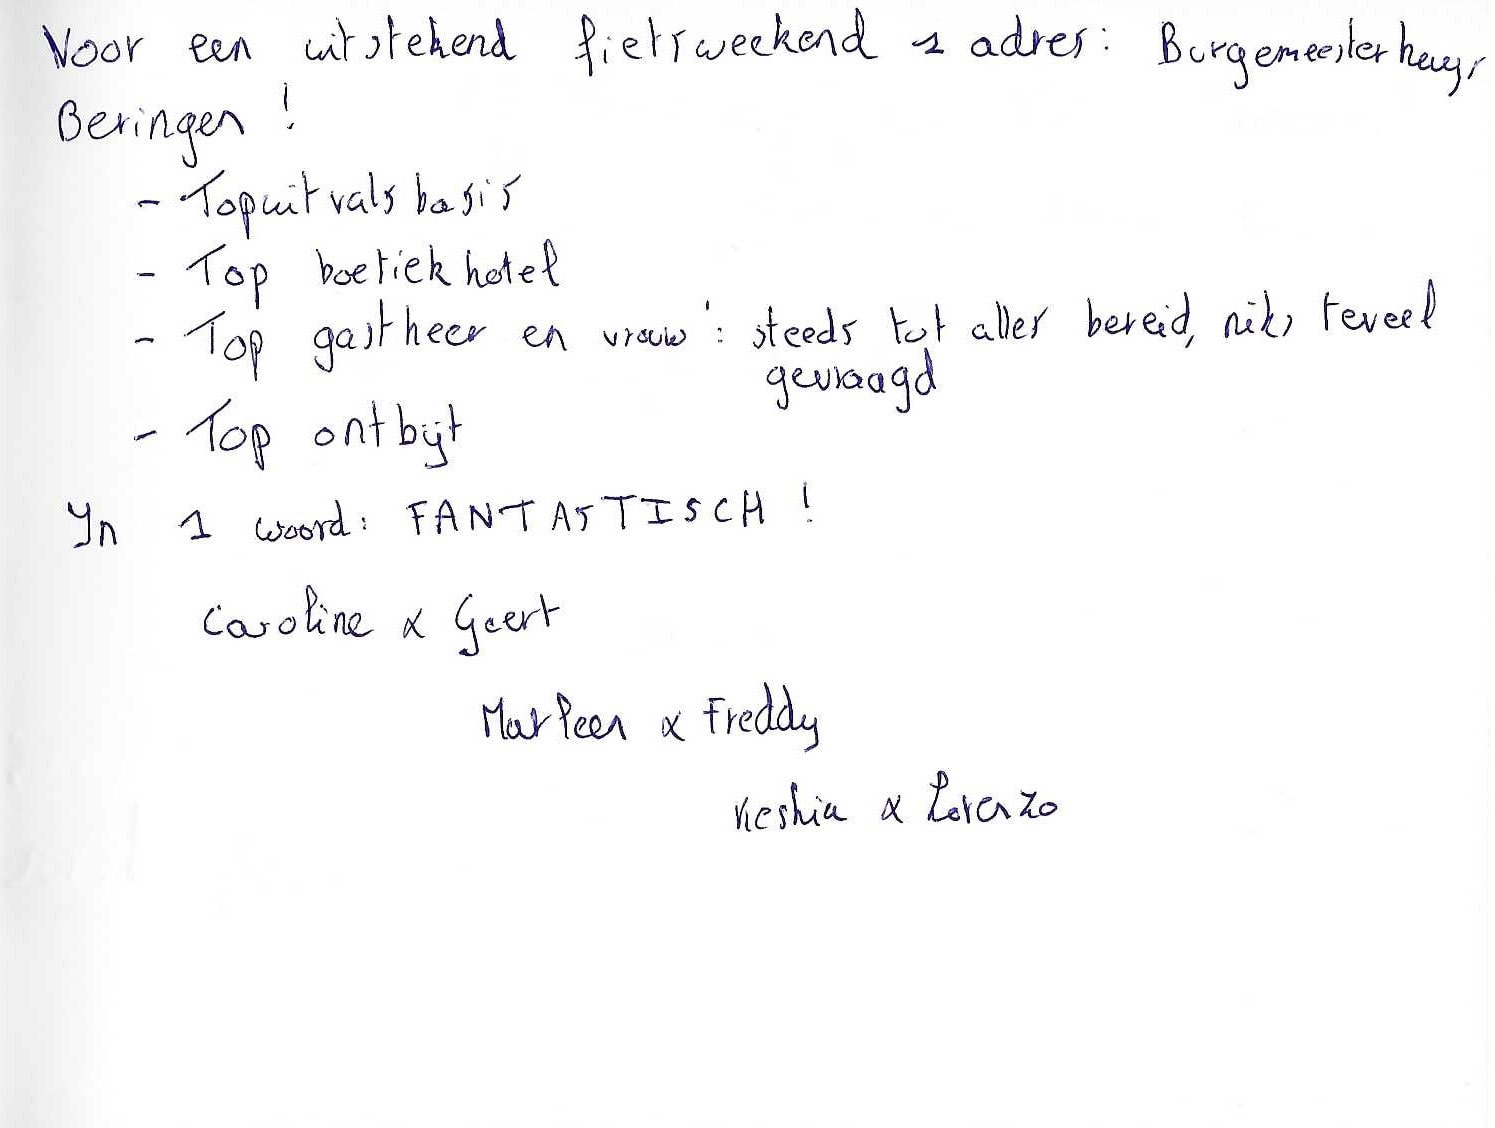 Voor een uitstekend fietsweekend 1 adres: Burgemeesterheys,
Beringen !
- Topuitvalsbasis
- Top boetiekhotel
- Top gastheer en vrouw': steeds tot alles bereid, niks teveel
gevraagd
- Top ontbijt
In 1 woord: FANTASTISCH !
Caroline & Geert
Marleen & Freddy
Keshia & Lorenzo